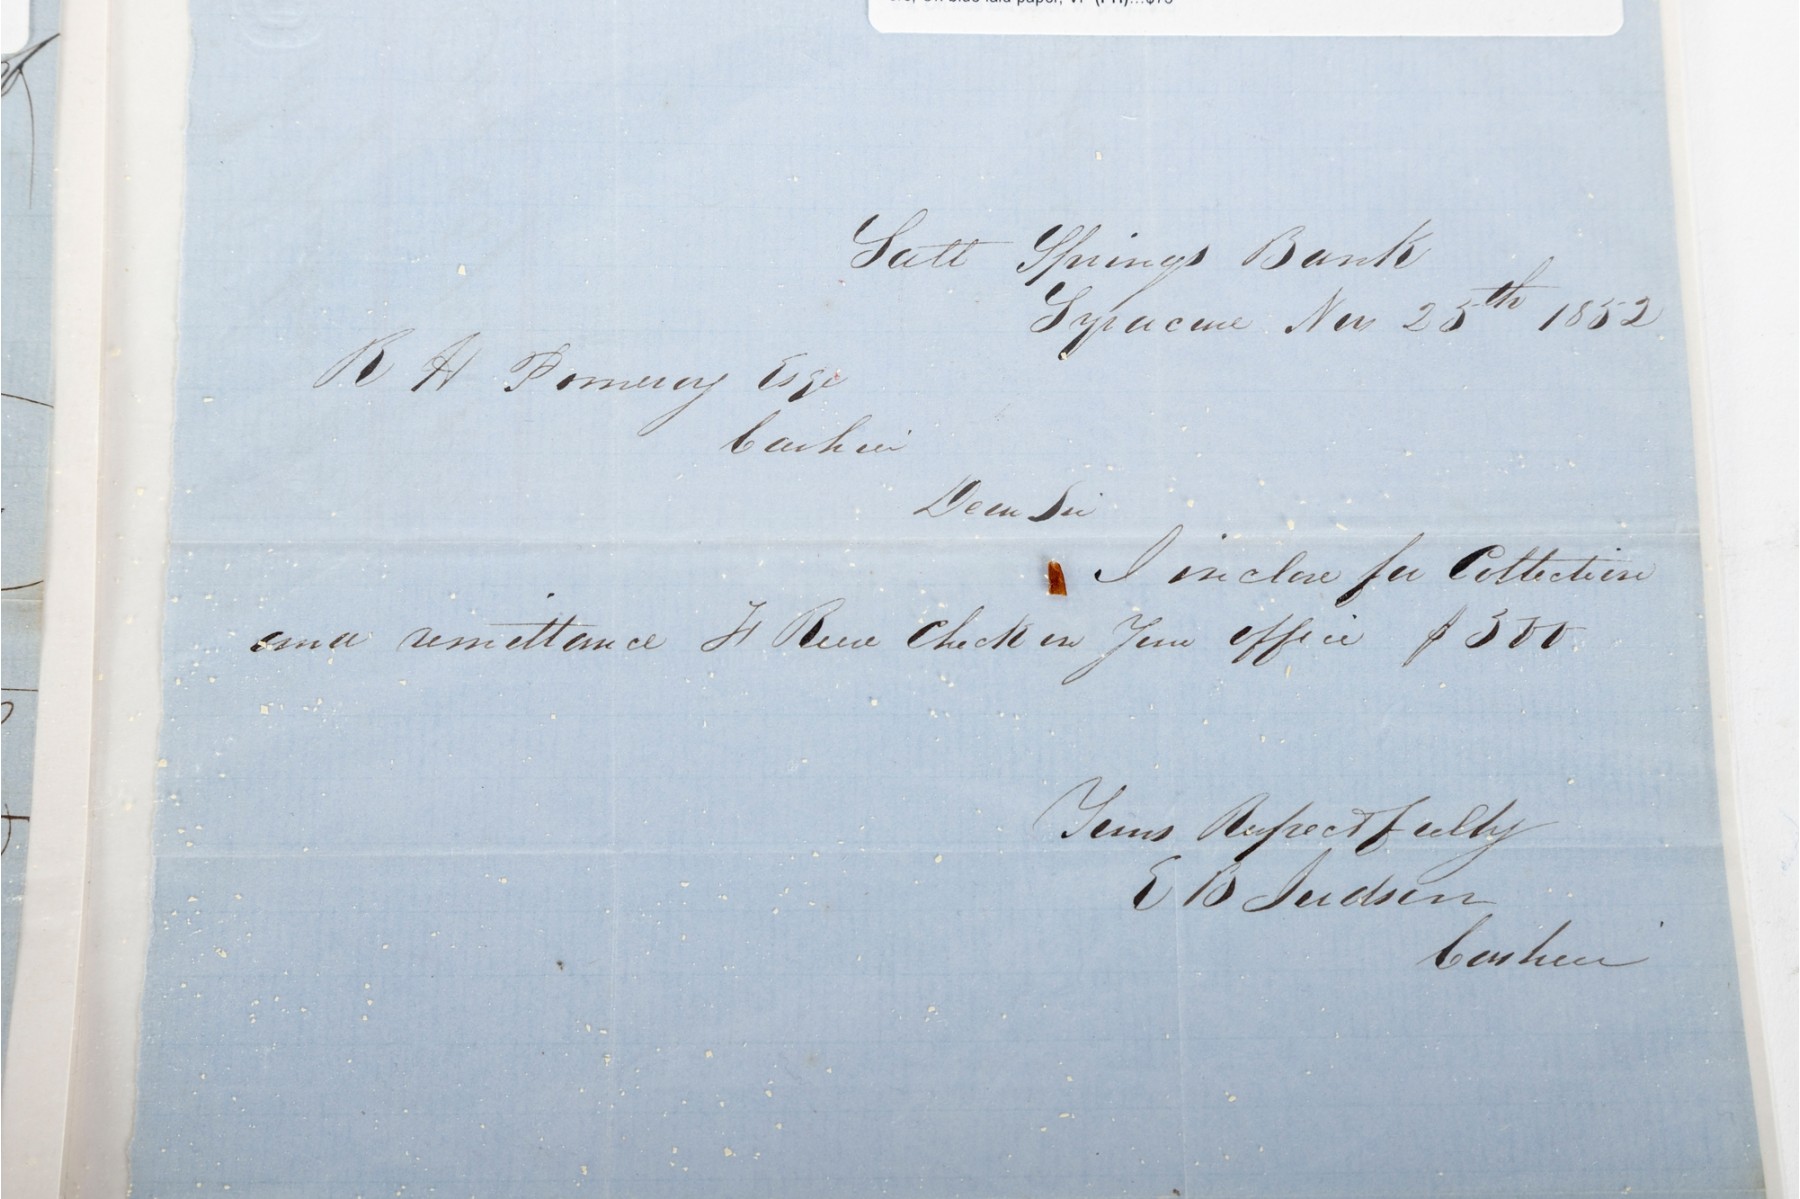 on blue laid paper, VF (PH)...$75
Salt Springs Bank
Syracuse Nov 25th 1852
R H Pomeroy Esqr
Cashier
Dear Sir
I inclose for Collection
and remittance Check on Your office $500.
Yours Respectfully
E B Judson
Cashier